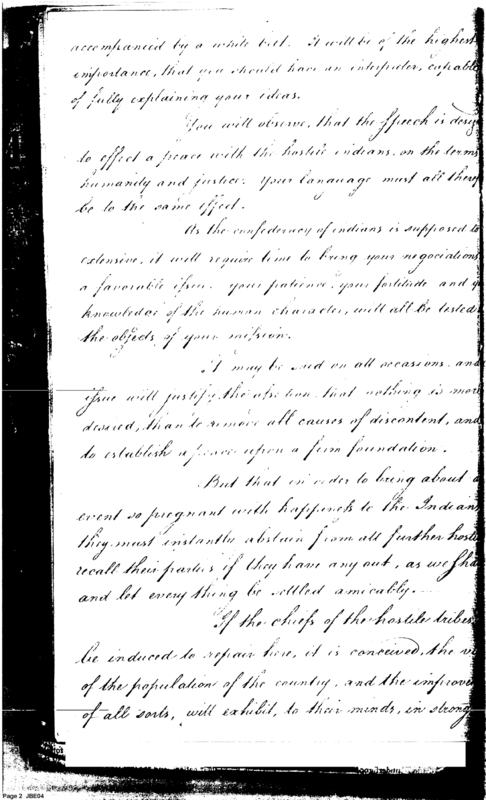 accompanied by a white belt. It will be of the highest
importance, that you should have an interpreter, capable
of fully explaining your ideas.
You will observe, that the speech is desig
to effect a peace with the hostile indians, on the terms
humanity and justice. Your language must allther
be to the same effect.
As the confederacy of indians is supposed to
extensive, it will require time to bring your negociations
a favorable issue. your patience, your fortitude and y
knowledge of the human character, will all be tested
the objects of your mission.
It may be said on all occasions, and
issue will justify the assertion that nothing is more
desired, than to remove all causes of discontent, and
to establish a peace upon a firm foundation.
But that in order to bring about a
event so pregnant with happiness to the Indian
they must instantly abstain from all further hosti
recall their parties if they have any out, as we sha
and let every thing be settled amicably.
If the chiefs of the hostile tribes
be induced to repair here, it is conceived, the vi
of the population of the country, and the improve
of all sorts, will exhibit, to their minds, in strong
Page 2 JBE04